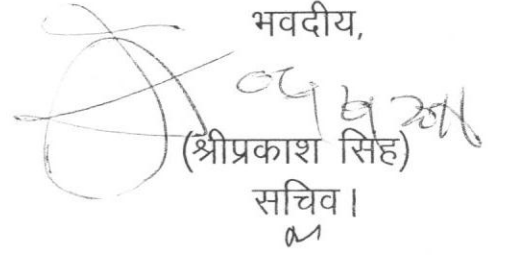 भवदीय,
(श्रीप्रकाश सिंह)
सचिव।